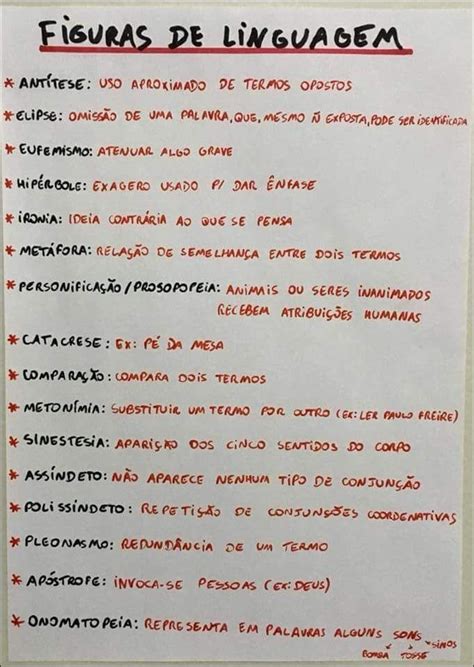 FIGURAS DE LINGUAGEM
* ANTÍTESE: USO APROXIMADO DE TERMOS OPOSTOS
* ELIPSE: OMISSÃO DE UMA PALAVRA, QUE, MESMO Ñ EXPOSTA, PODE SER IDENTIFICADA
* EUFEMISMO: ATENUAR ALGO GRAVE
* HIPÉRBOLE: EXAGERO USADO P/ DAR ÊNFASE
* IRONIA: IDEIA CONTRÁRIA AO QUE SE PENSA
* METÁFORA: RELAÇÃO DE SEMELHANÇA ENTRE DOIS TERMOS
* PERSONIFICAÇÃO/PROSOPOPEIA: ANIMAIS OU SERES INANIMADOS
RECEBEM ATRIBUIÇÕES HUMANAS
* CATACRESE: EX: PÉ DA MESA
* COMPARAÇÃO: COMPARA DOIS TERMOS
* METONÍMIA: SUBSTITUIR UM TERMO POR OUTRO (EX: LER PAULO FREIRE)
* SINESTESIA: APARIÇÃO DOS CINCO SENTIDOS DO CORPO
* ASSÍNDETO: NÃO APARECE NENHUM TIPO DE CONJUNÇÃO
* POLISSÍNDETO: REPETIÇÃO DE CONJUNÇÕES COORDENATIVAS
* PLEONASMO: REDUNDÂNCIA DE UM TERMO
* APÓSTROFE: INVOCA-SE PESSOAS (EX: DEUS)
* ONOMATOPEIA: REPRESENTA EM PALAVRAS ALGUNS SONS
SINOS
BOMBA TOSSE